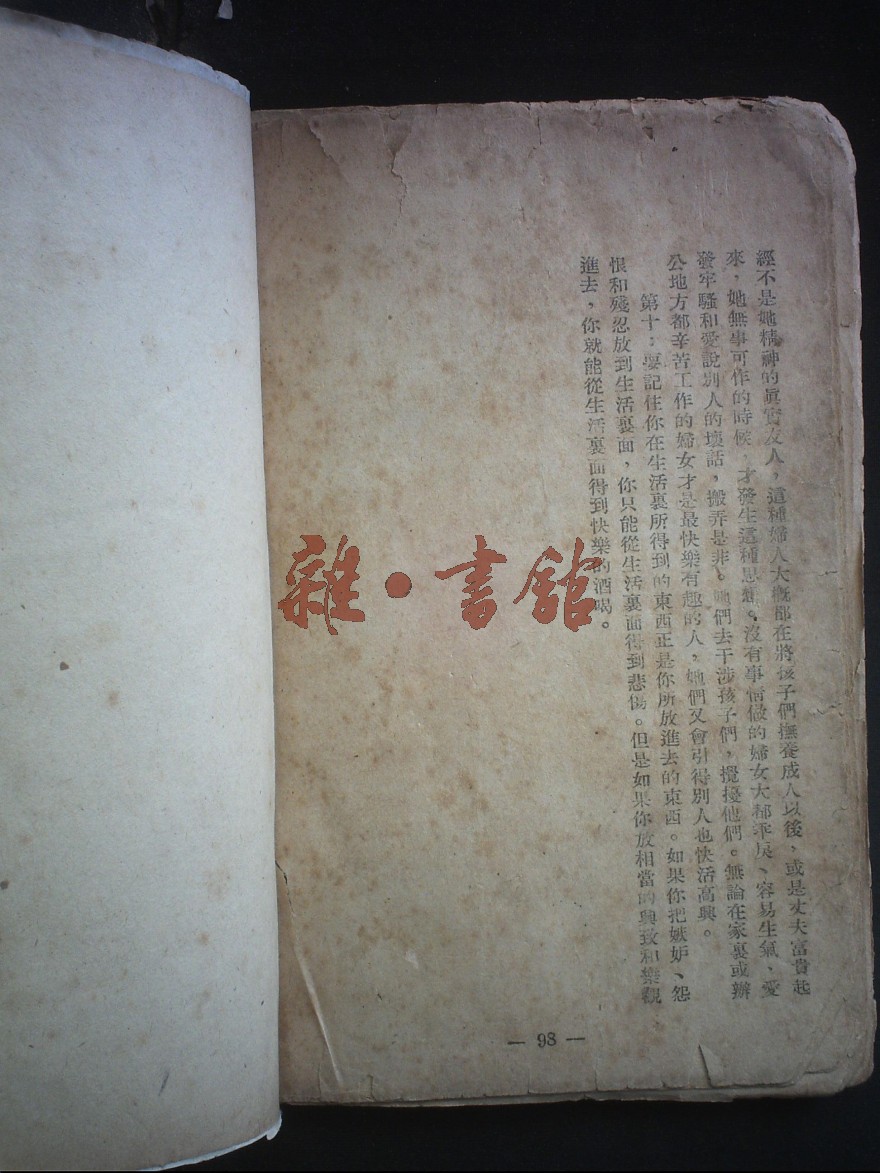 經不是她精神的眞實友人，這種婦人大概都在將孩子們撫養成人以後，或是丈夫富貴起
來，她無事可作的時候，才發生這種思想。沒有事情做的婦女大都乖戾、容易生氣、愛
發牢騷和愛說別人的壞話，搬弄是非。她們去干涉孩子們，攪擾他們。無論在家裏或辦
公地方都辛苦工作的婦女才是最快樂有趣的人，她們又會引得別人也快活高興。
第十：要記住你在生活裏所得到的東西正是你所放進去的東西。如果你把嫉妒、怨
恨和殘忍放到生活裏面，你只能從生活裏面得到悲傷。但是如果你放相當的興致和樂觀
進去，你就能從生活裏面得到快樂的酒喝。
— 98 —
雜·書館